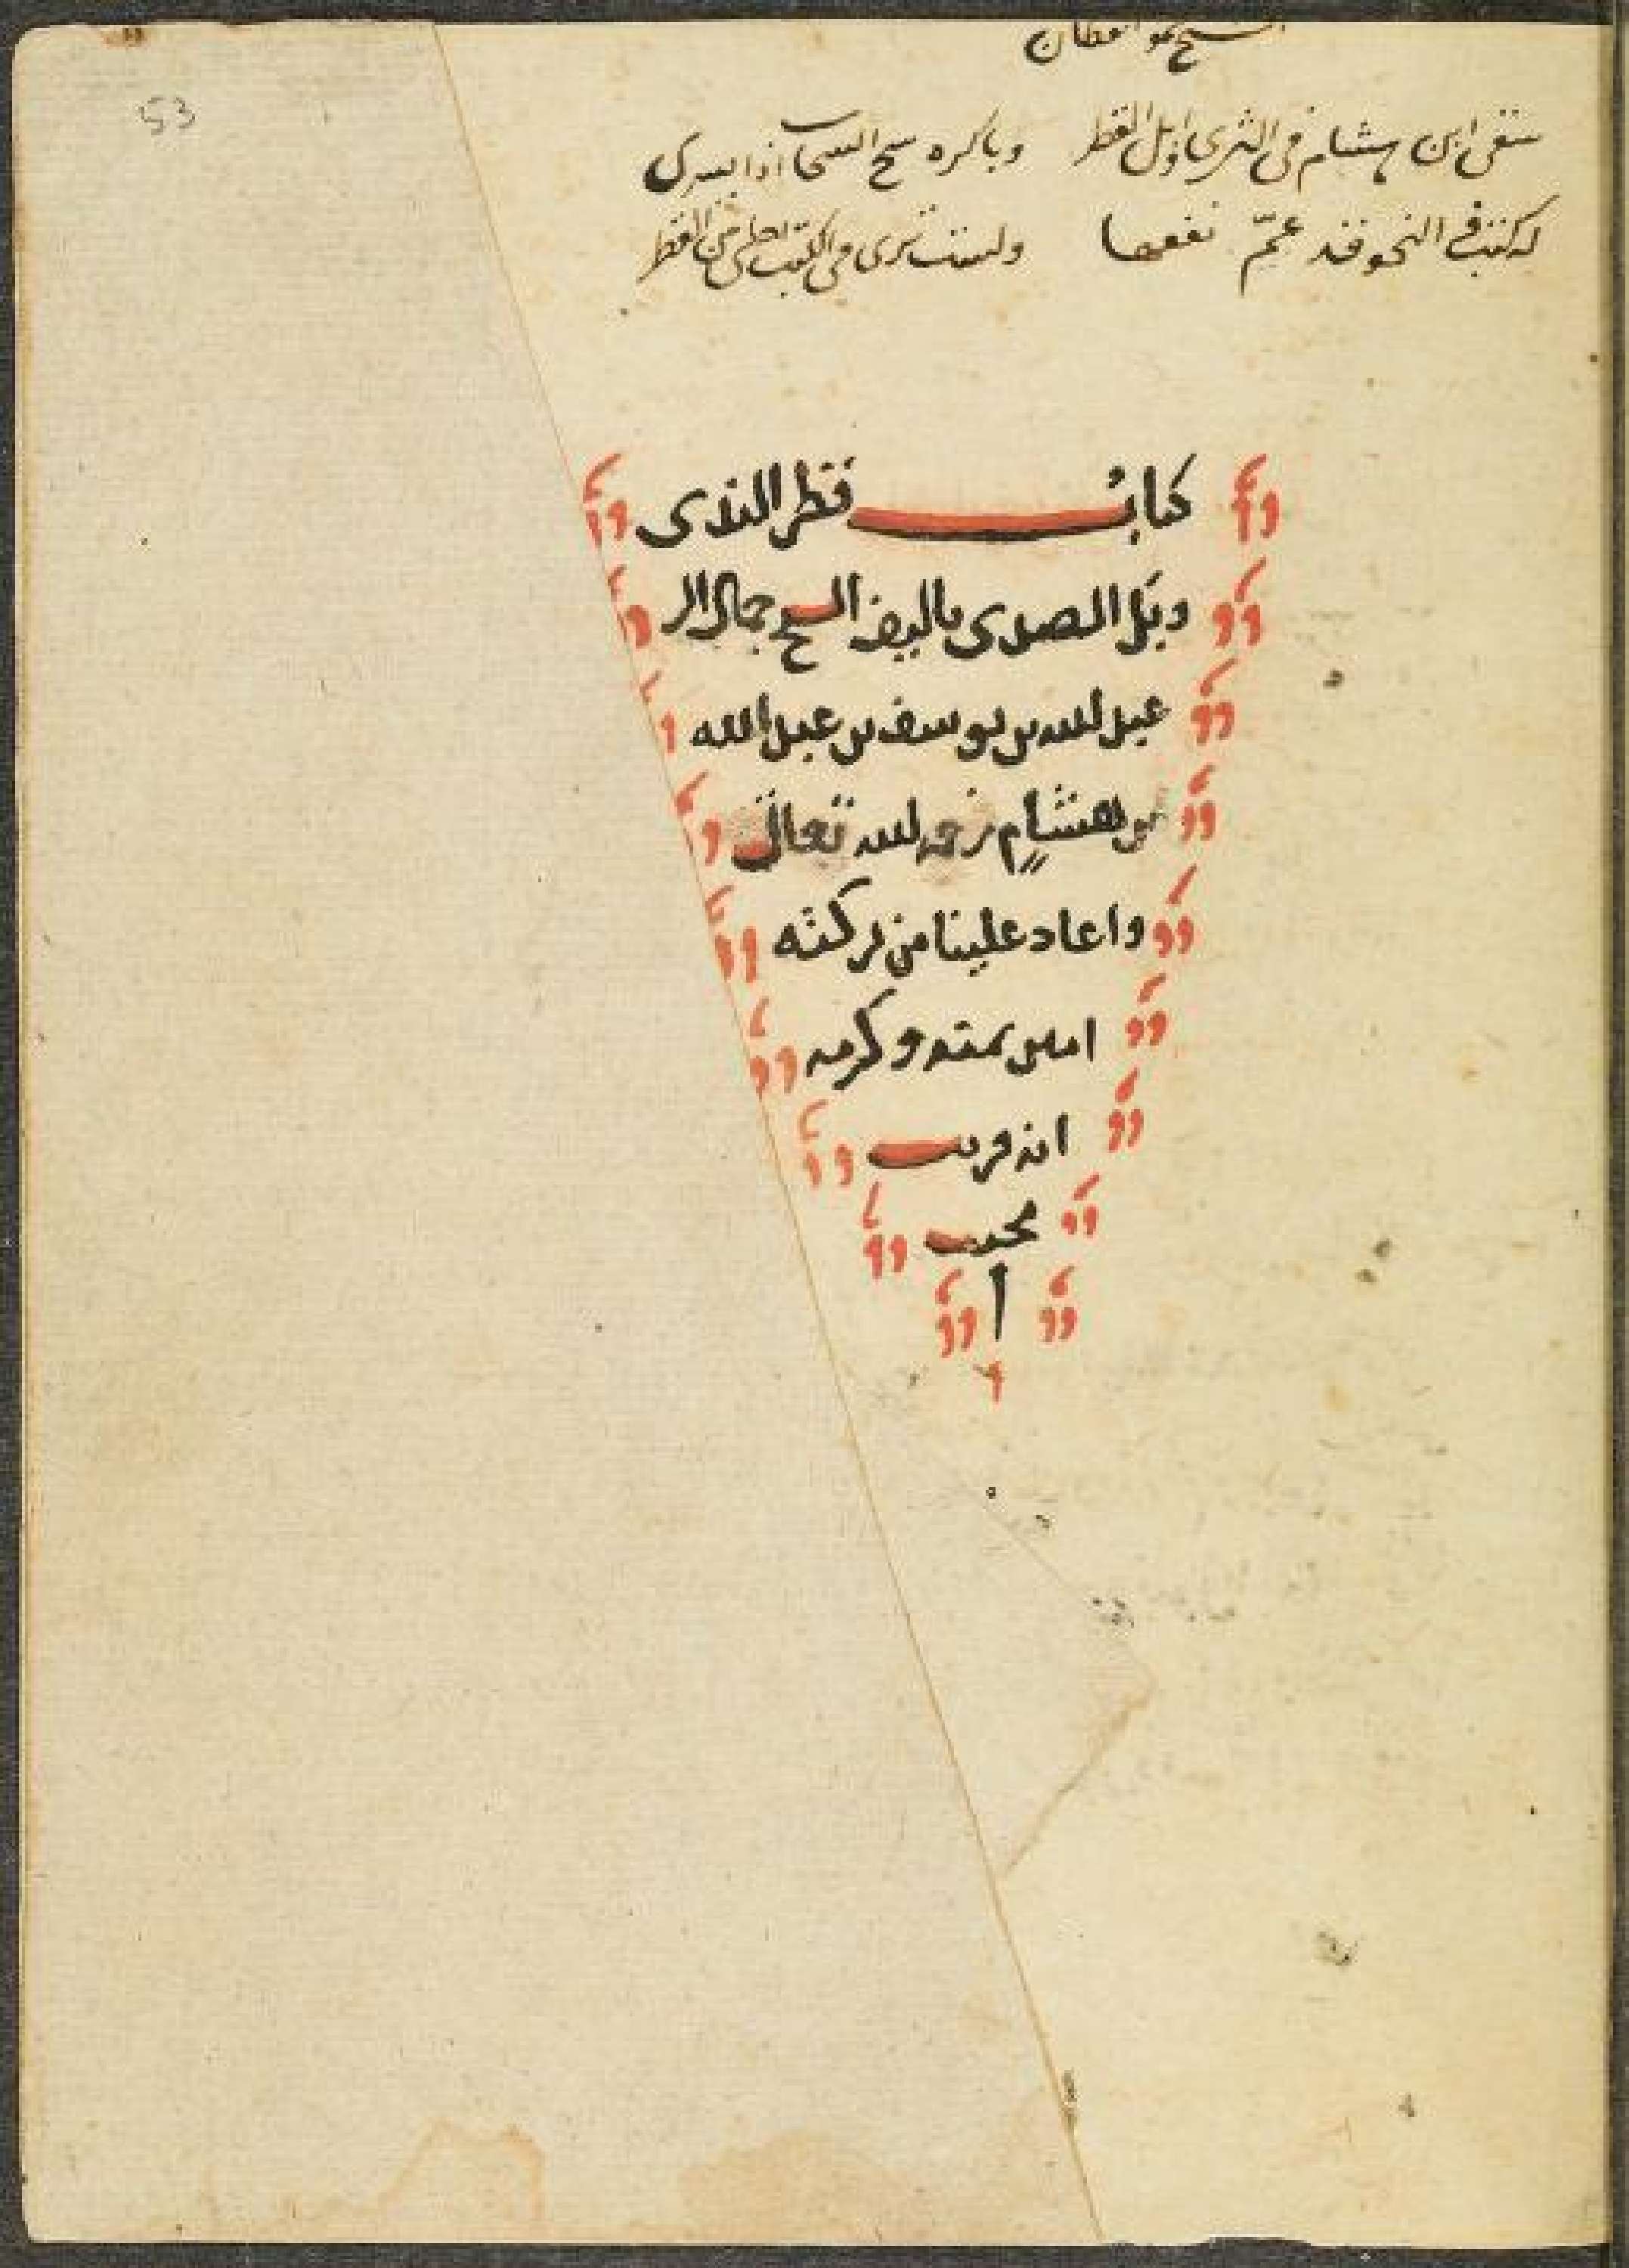 53
سقى ابن هشام فى الثرى اوبل القطر وباكره سح السحاب اذا يسرى
له كتب فى النحو قد عمّ نفعها ولست ترى فى الكتب من القطر
كتاب قطر الندى
وبل الصدى تاليف الشيخ جمال الد
عبد الله بن يوسف بن عبد الله
بن هشام رحمه الله تعالى
واعاد علينا من بركته
امين بمنه وكرمه
انه قريب
مجيب
ا